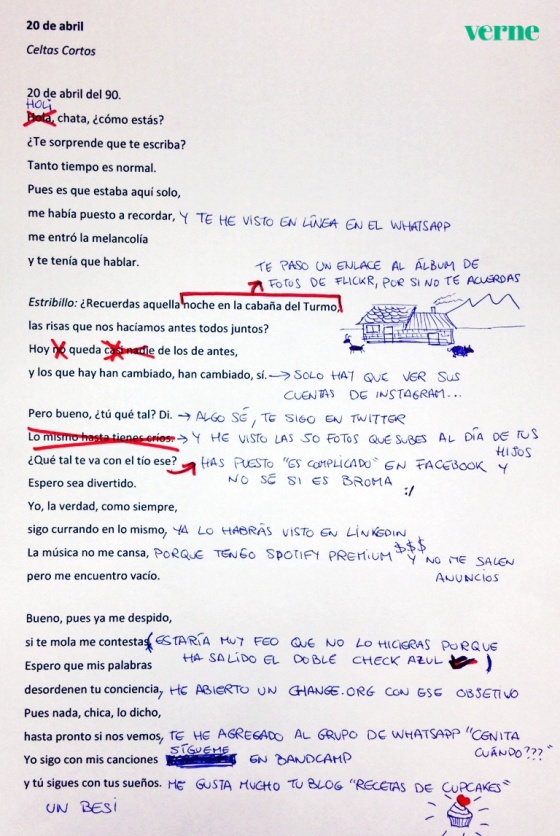 20 de abril
verne
Celtas Cortos
20 de abril del 90.
HOLI
Hola, chata, ¿cómo estás?
¿Te sorprende que te escriba?
Tanto tiempo es normal.
Pues es que estaba aquí solo,
me había puesto a recordar, Y TE HE VISTO EN LÍNEA EN EL WHATSAPP
me entró la melancolía
y te tenía que hablar.
TE PASO UN ENLACE AL ÁLBUM DE
FOTOS DE FLICKR, POR SI NO TE ACUERDAS
Estribillo: ¿Recuerdas aquella noche en la cabaña del Turmo,
las risas que nos hacíamos antes todos juntos?
Hoy no queda casi nadie de los de antes,
y los que hay han cambiado, han cambiado, sí. → SOLO HAY QUE VER SUS
CUENTAS DE INSTAGRAM...
Pero bueno, ¿tú qué tal? Di. → ALGO SÉ, TE SIGO EN TWITTER
Lo mismo hasta tienes críos. → Y HE VISTO LAS 50 FOTOS QUE SUBES AL DÍA DE TUS
HIJOS
¿Qué tal te va con el tío ese? → HAS PUESTO "ES COMPLICADO" EN FACEBOOK Y
NO SÉ SI ES BROMA
Espero sea divertido.
:/
Yo, la verdad, como siempre,
sigo currando en lo mismo, YA LO HABRÁS VISTO EN LINKEDIN
La música no me cansa, PORQUE TENGO SPOTIFY PREMIUM $$$ Y NO ME SALEN
ANUNCIOS
pero me encuentro vacío.
Bueno, pues ya me despido,
si te mola me contestas (ESTARÍA MUY FEO QUE NO LO HICIERAS PORQUE
HA SALIDO EL DOBLE CHECK AZUL )
Espero que mis palabras
desordenen tu conciencia, HE ABIERTO UN CHANGE.ORG CON ESE OBJETIVO
Pues nada, chica, lo dicho,
hasta pronto si nos vemos, TE HE AGREGADO AL GRUPO DE WHATSAPP "CENITA
CUÁNDO???"
SÍGUEME
Yo sigo con mis canciones EN BANDCAMP
y tú sigues con tus sueños. ME GUSTA MUCHO TU BLOG "RECETAS DE CUPCAKES"
UN BESI